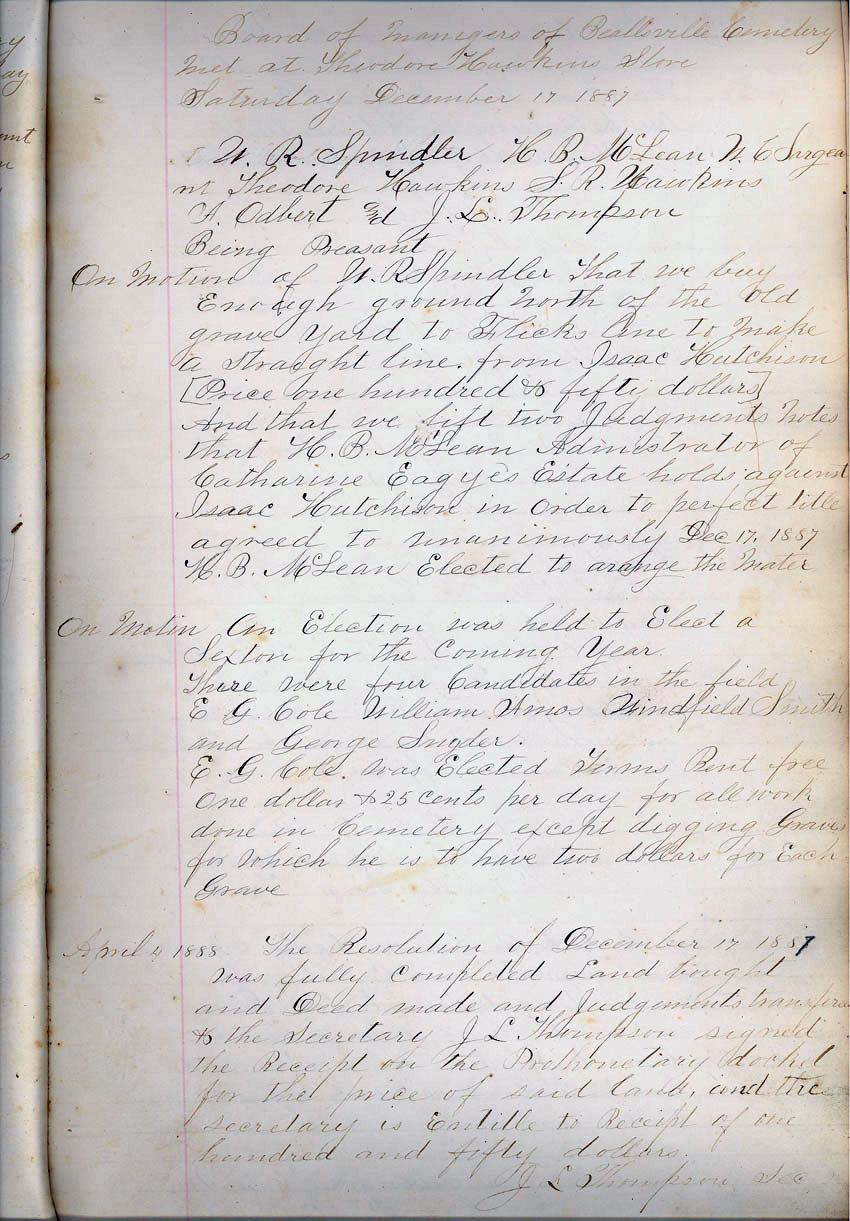 Board of Manigers of Beallsville Cemetery
Met at Theodore Hawkins Store
Saturday December 17 1887
W. R. Spindler H. B. McLean W. C Sargea
nt Theodore Hawkins S. R. Hawkins
A. Odbert and J. L. Thompson
Being Preasant
On Motion of W. R Spindler That we buy
Enough ground North of the Old
grave Yard to Flicks line to make
a straight line. from Isaac Hutchison
[Price one hundred & fifty dollars]
And that we lift two Judgments Notes
that H. B. McLean Admistrator of
Catharine Eagyes Estate holds against
Isaac Hutchison in order to perfect title
agreed to unanimously Dec 17, 1887
H. B. McLean Elected to arange the Mater
On Motin An Election was held to Elect a
Sexton for the Coming Year.
There were four Candidates in the field
E G. Cole William Amos Windfield Smith
and George Snyder.
E. G. Cole. was Elected Terms Rent free
One dollar & 25 cents per day for all work
done in Cemetery except digging Graves
for which he is to have two dollars for Each
Grave
April 4 1888 The Resolution of December 17 1887
was fully Completed Land bought
and Deed made and Judgements transfere
& the Secretary J L Thompson signed
the Receipt on the Prothonetary docket
for the price of said land, and the
secretary is Entitle to Receipt of one
hundred and fifty dollars.
J L Thompson Sec